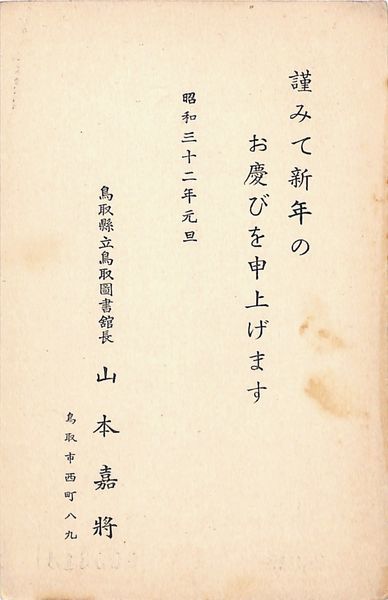 謹みて新年の
お慶びを申上げます
昭和三十二年元旦
鳥取縣立鳥取圖書舘長 山本嘉將
鳥取市西町八九